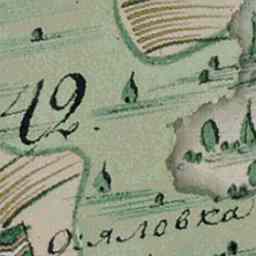 42.
о: яловка